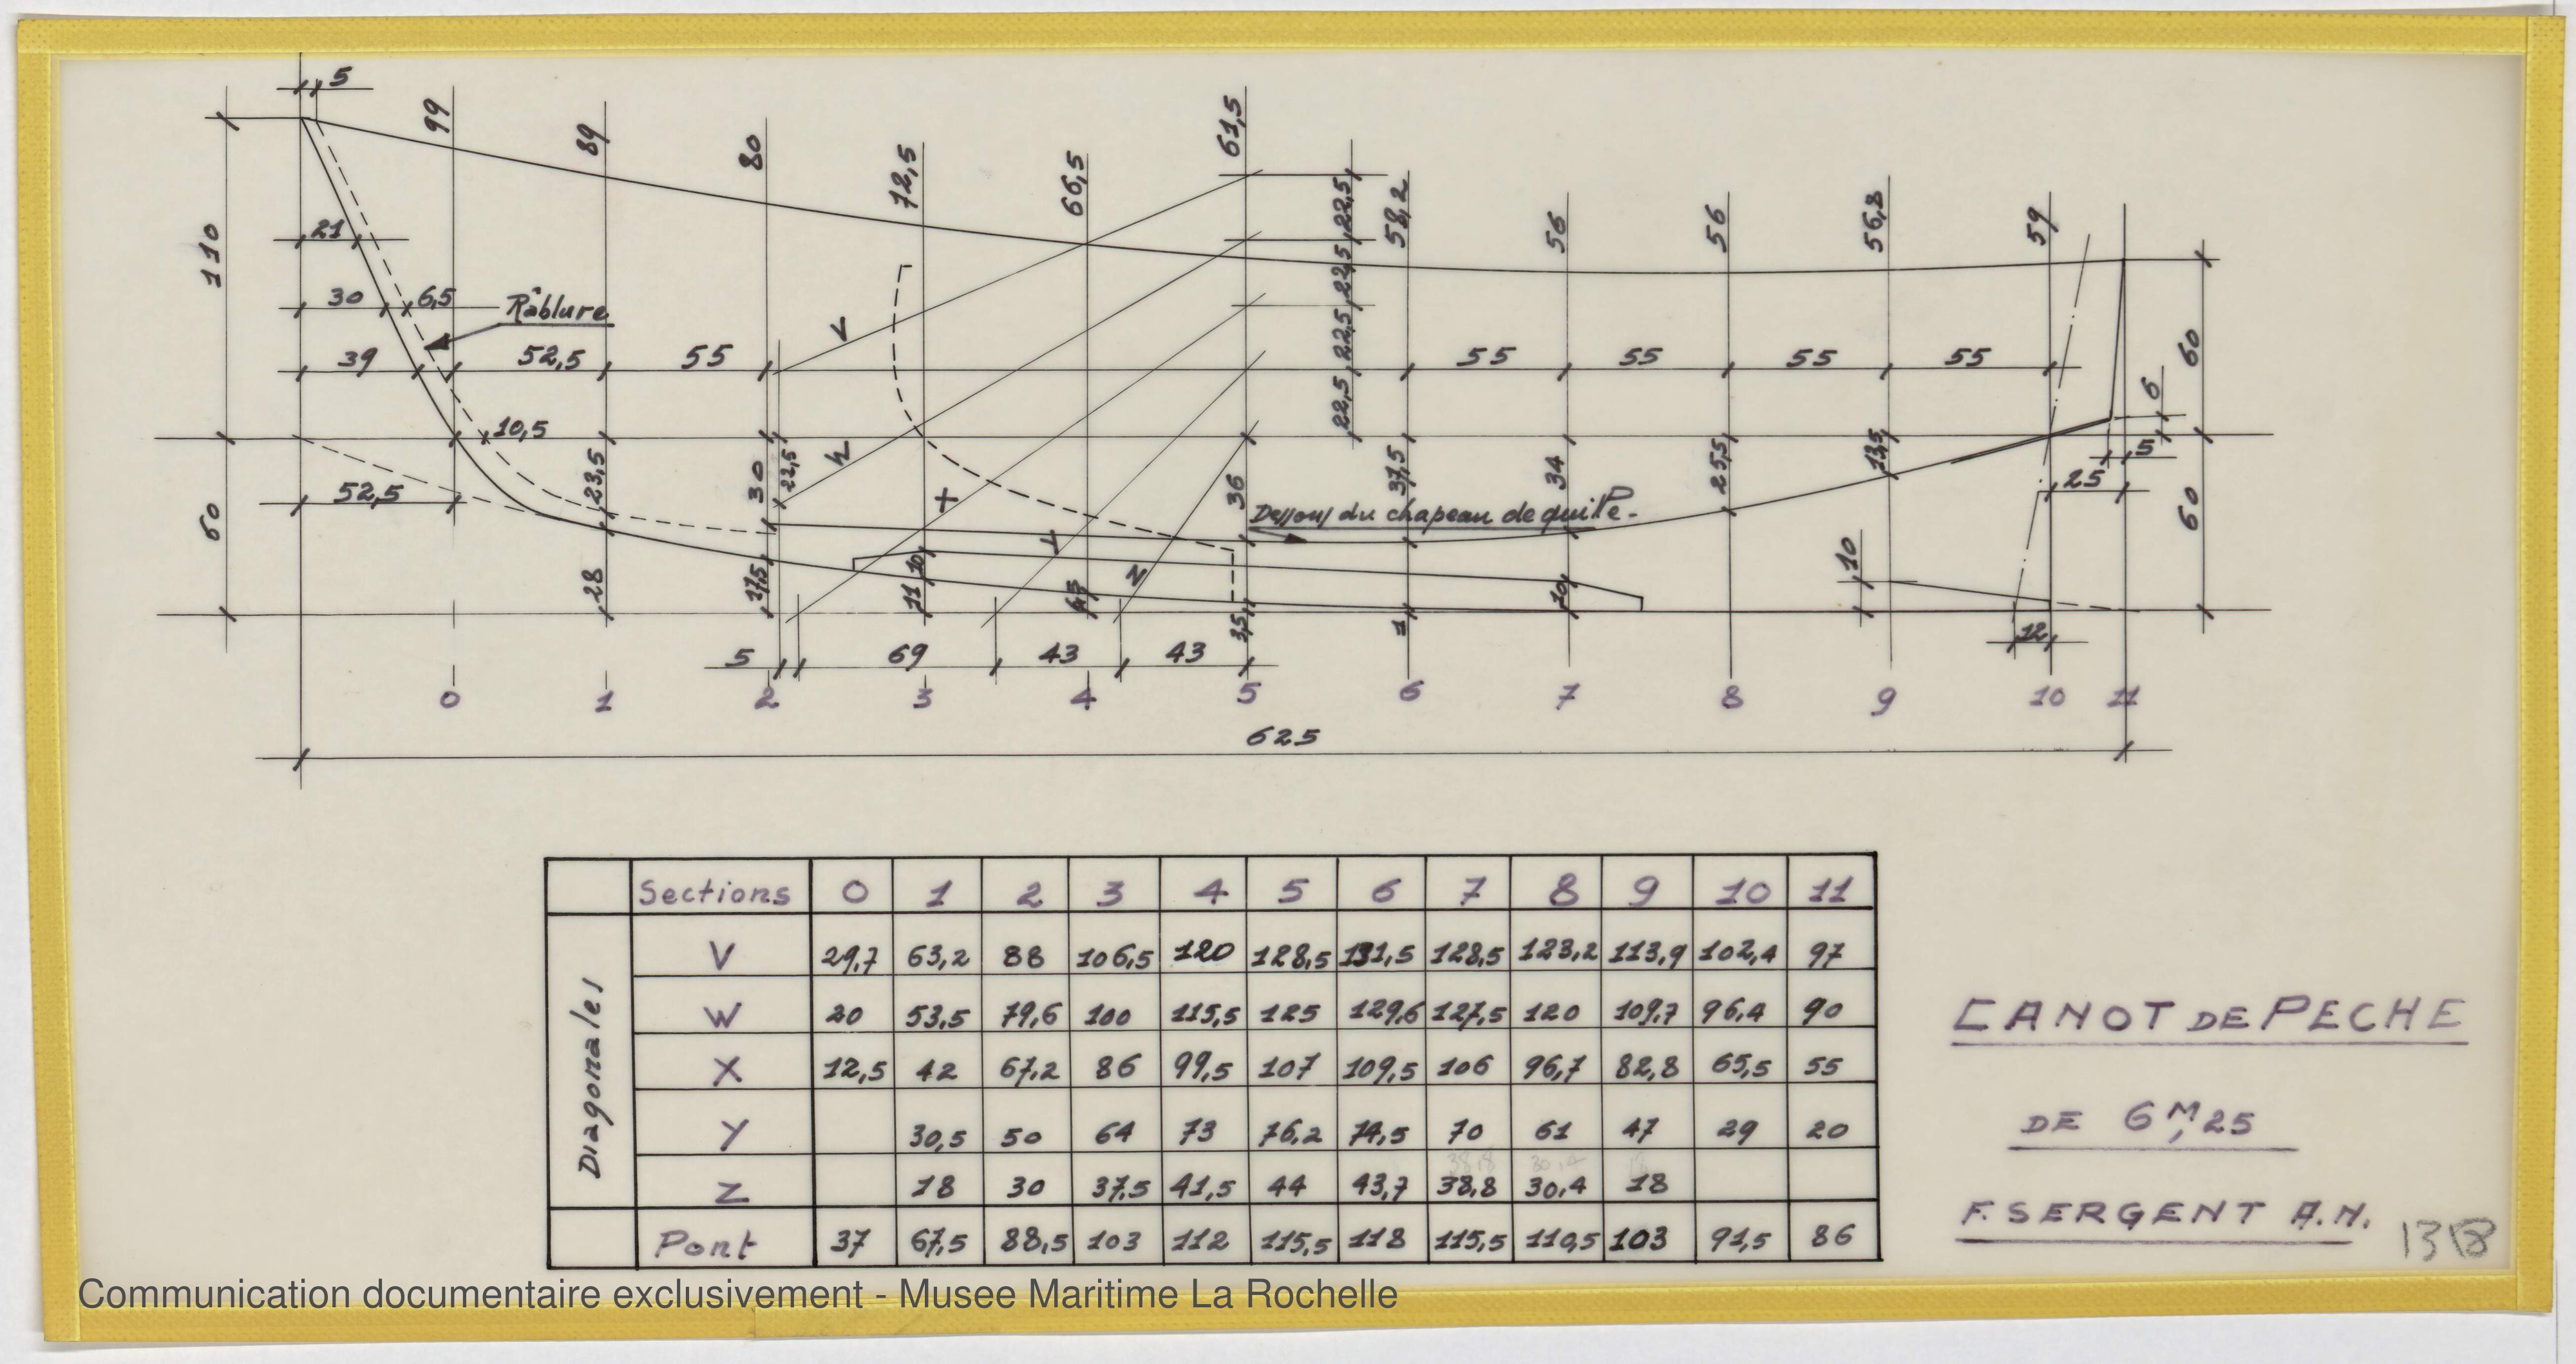 5
99
89
80
72,5
66,5
61,5
58,2
56
56
56,8
59
110
21
30
6,5
Râblure
39
52,5
55
22,5
22,5
22,5
22,5
55
55
55
55
60
6
V
W
X
Y
Z
10,5
52,5
23,5
30
22,5
36
37,5
34
25,5
13,5
5
25
60
60
Dessous du chapeau de quille.
28
17,5
11
10
6,5
3,5
1
10
10
12
5
69
43
43
0 1 2 3 4 5 6 7 8 9 10 11
625
Sections 0 1 2 3 4 5 6 7 8 9 10 11
Diagonales
V 29,7 63,2 88 106,5 120 128,5 131,5 128,5 123,2 113,9 102,4 97
W 20 53,5 79,6 100 115,5 125 129,6 127,5 120 109,7 96,4 90
X 12,5 42 67,2 86 99,5 107 109,5 106 96,7 82,8 65,5 55
Y 30,5 50 64 73 76,2 74,5 70 61 47 29 20
Z 18 30 37,5 41,5 44 43,7 38,8 30,4 18
Pont 37 67,5 88,5 103 112 115,5 118 115,5 110,5 103 91,5 86
CANOT DE PECHE
DE 6M,25
F. SERGENT A.N.
Communication documentaire exclusivement - Musee Maritime La Rochelle